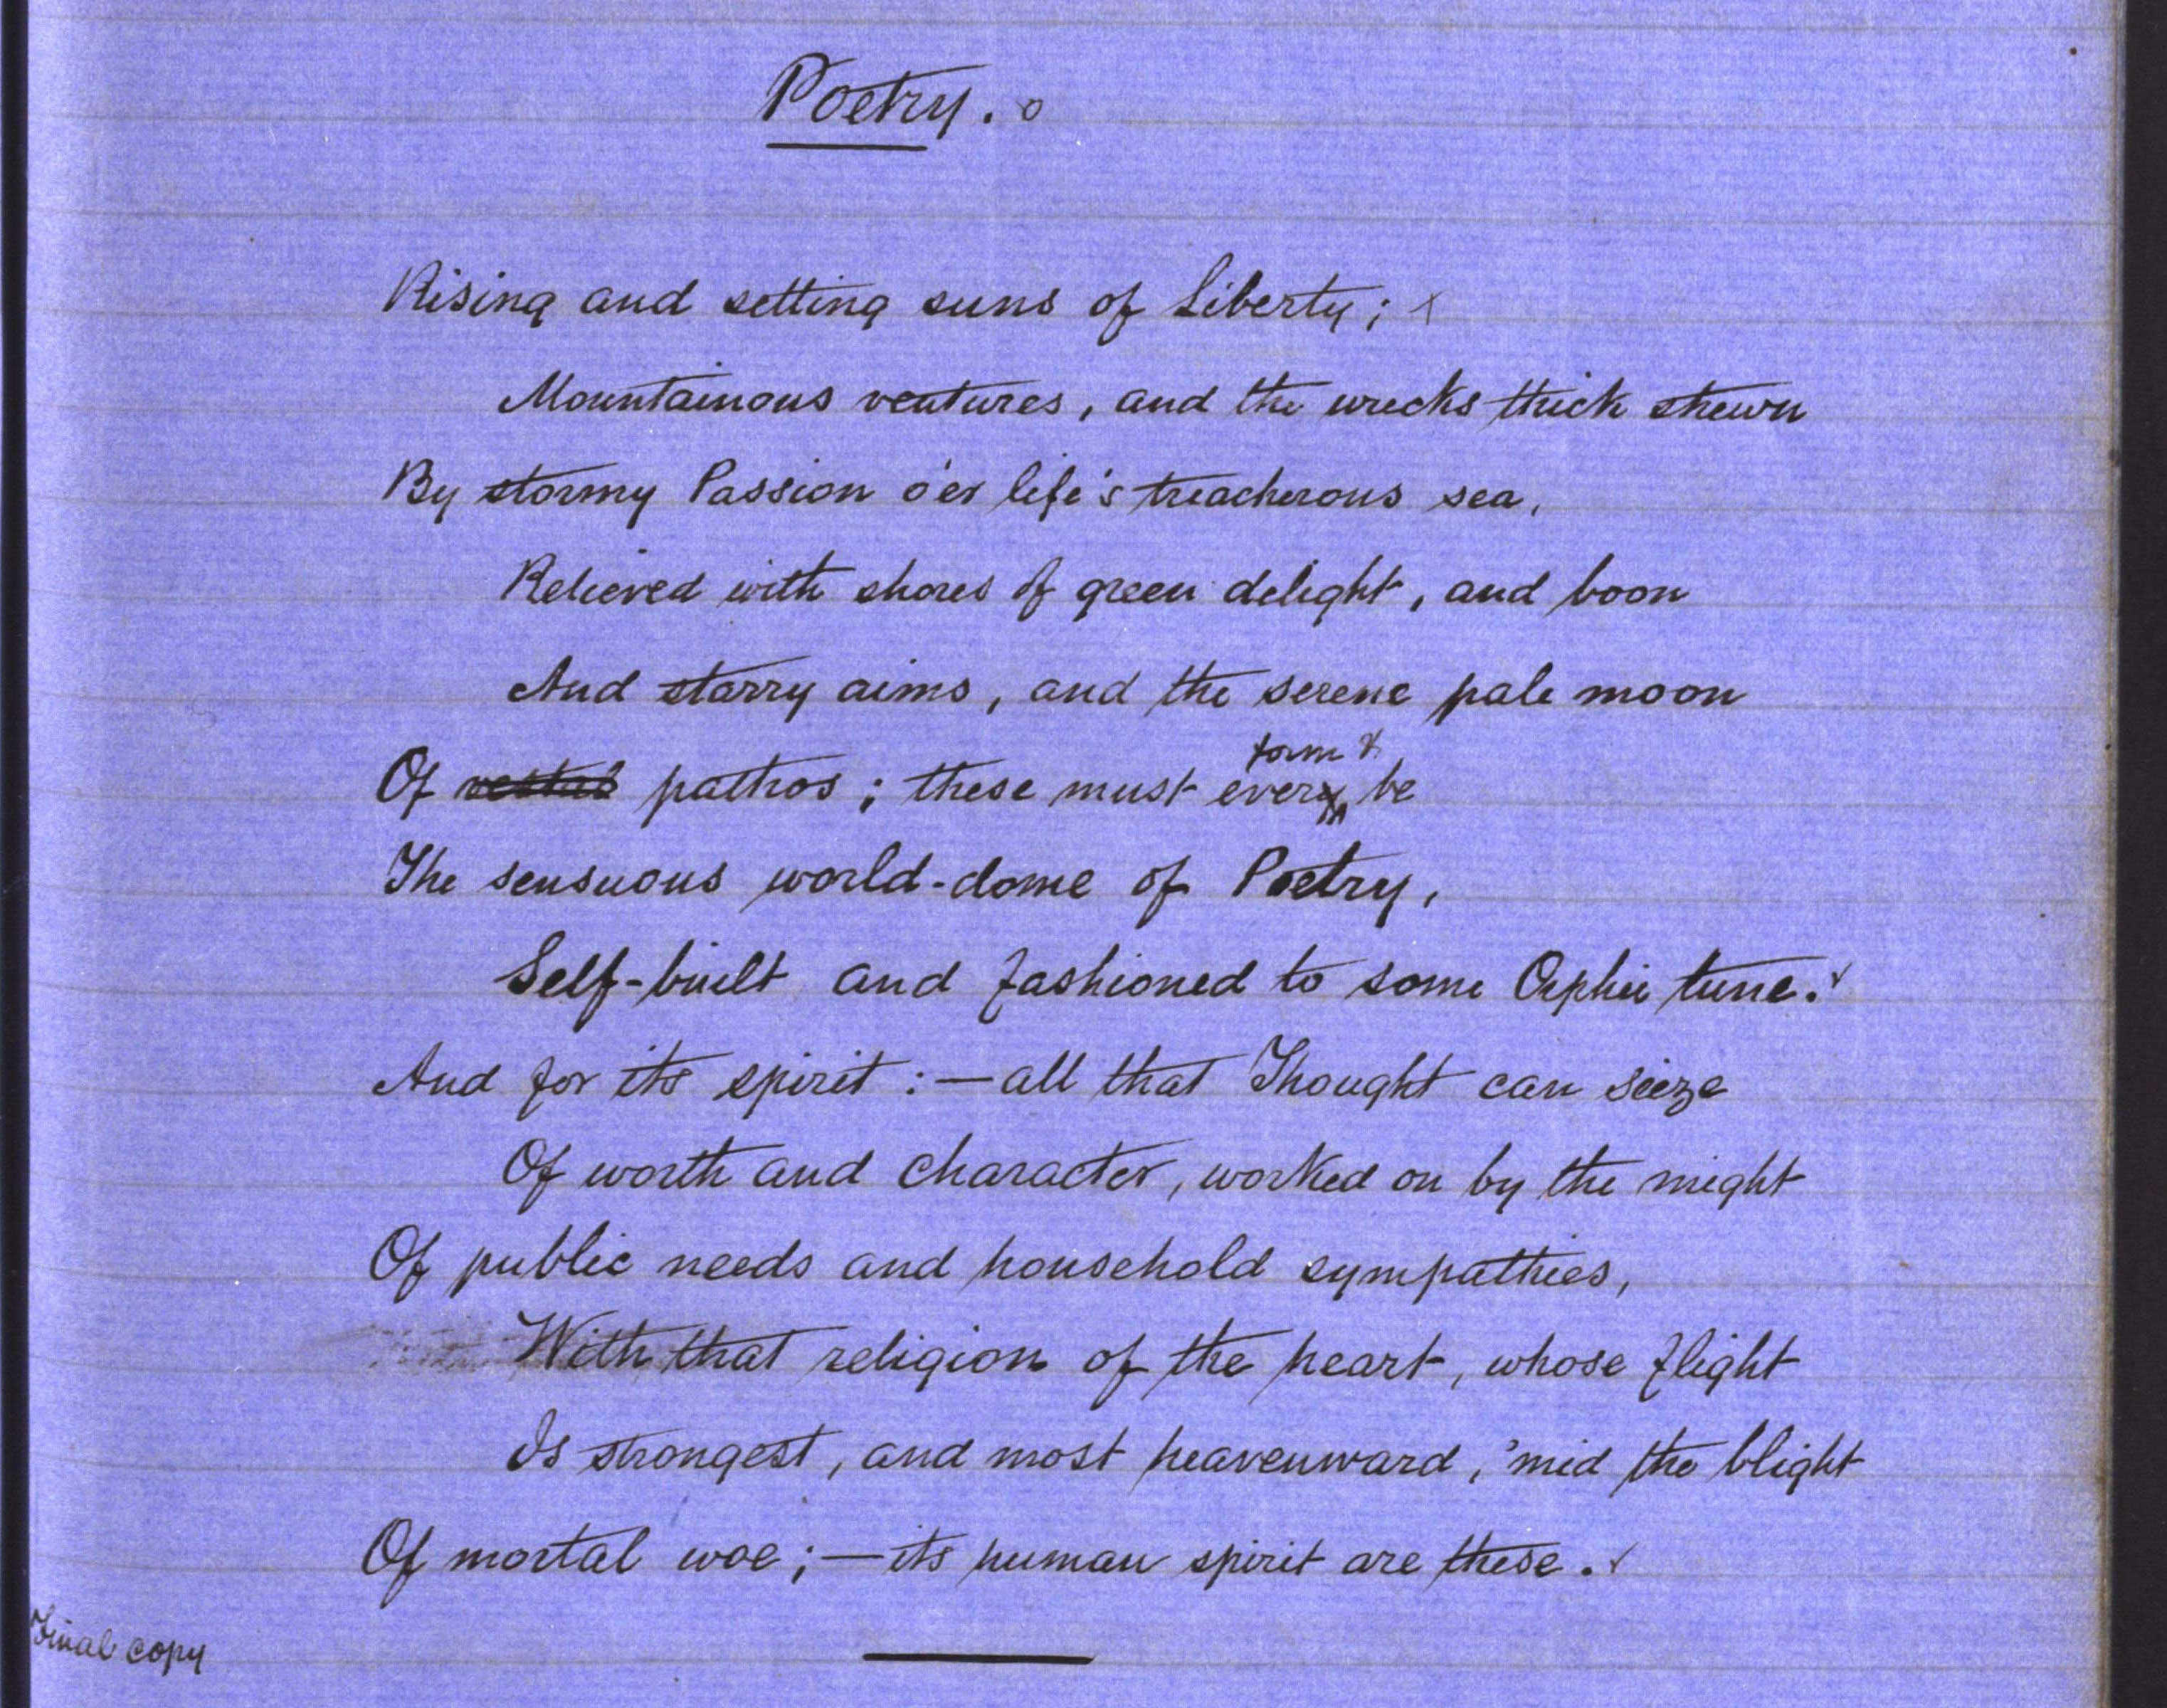 Poetry. o
Rising and setting suns of Liberty; x
Mountainous ventures, and the wrecks thick strewn
By stormy Passion o'er life's treacherous sea,
Relieved with shores of green delight, and boon
And starry aims, and the serene pale moon
form
Of vestal pathos; these must ever be
The sensuous world-dome of Poetry,
Self-built and fashioned to some Orphic tune.
And for its spirit:—all that Thought can sieze
Of worth and character, worked on by the might
Of public needs and household sympathies,
With that religion of the heart, whose flight
Is strongest, and most heavenward, 'mid the blight
Of mortal woe;—its human spirit are these.
Final copy